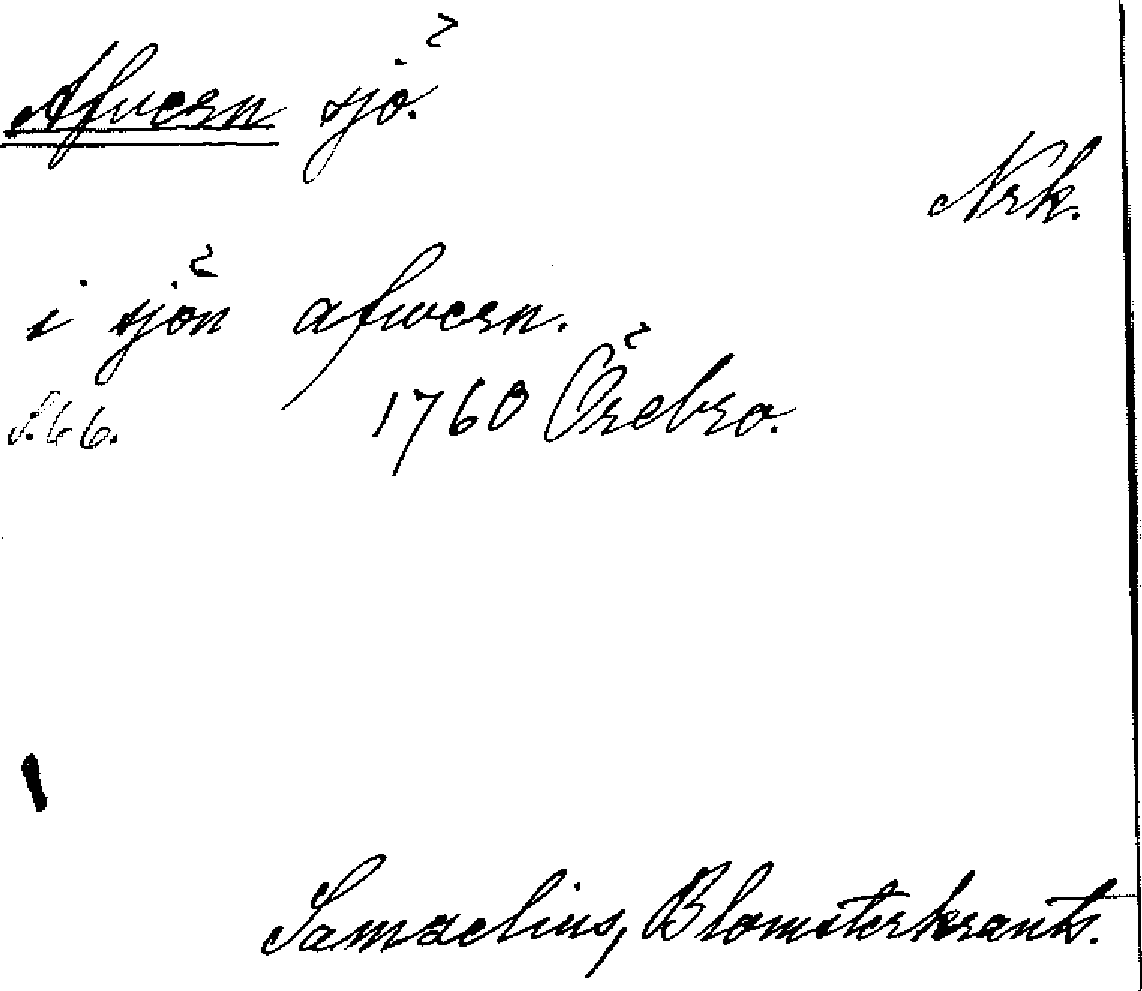 Afvern sjö.
Nrk.
i sjön afwern.
S. 66. 1760 Örebro.
Samzelius, Blomsterkrants.